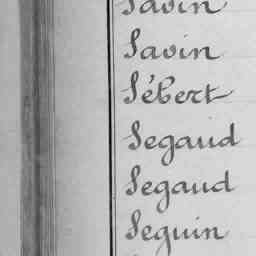 Savin
Savin
Sébert
Segaud
Segaud
Seguin